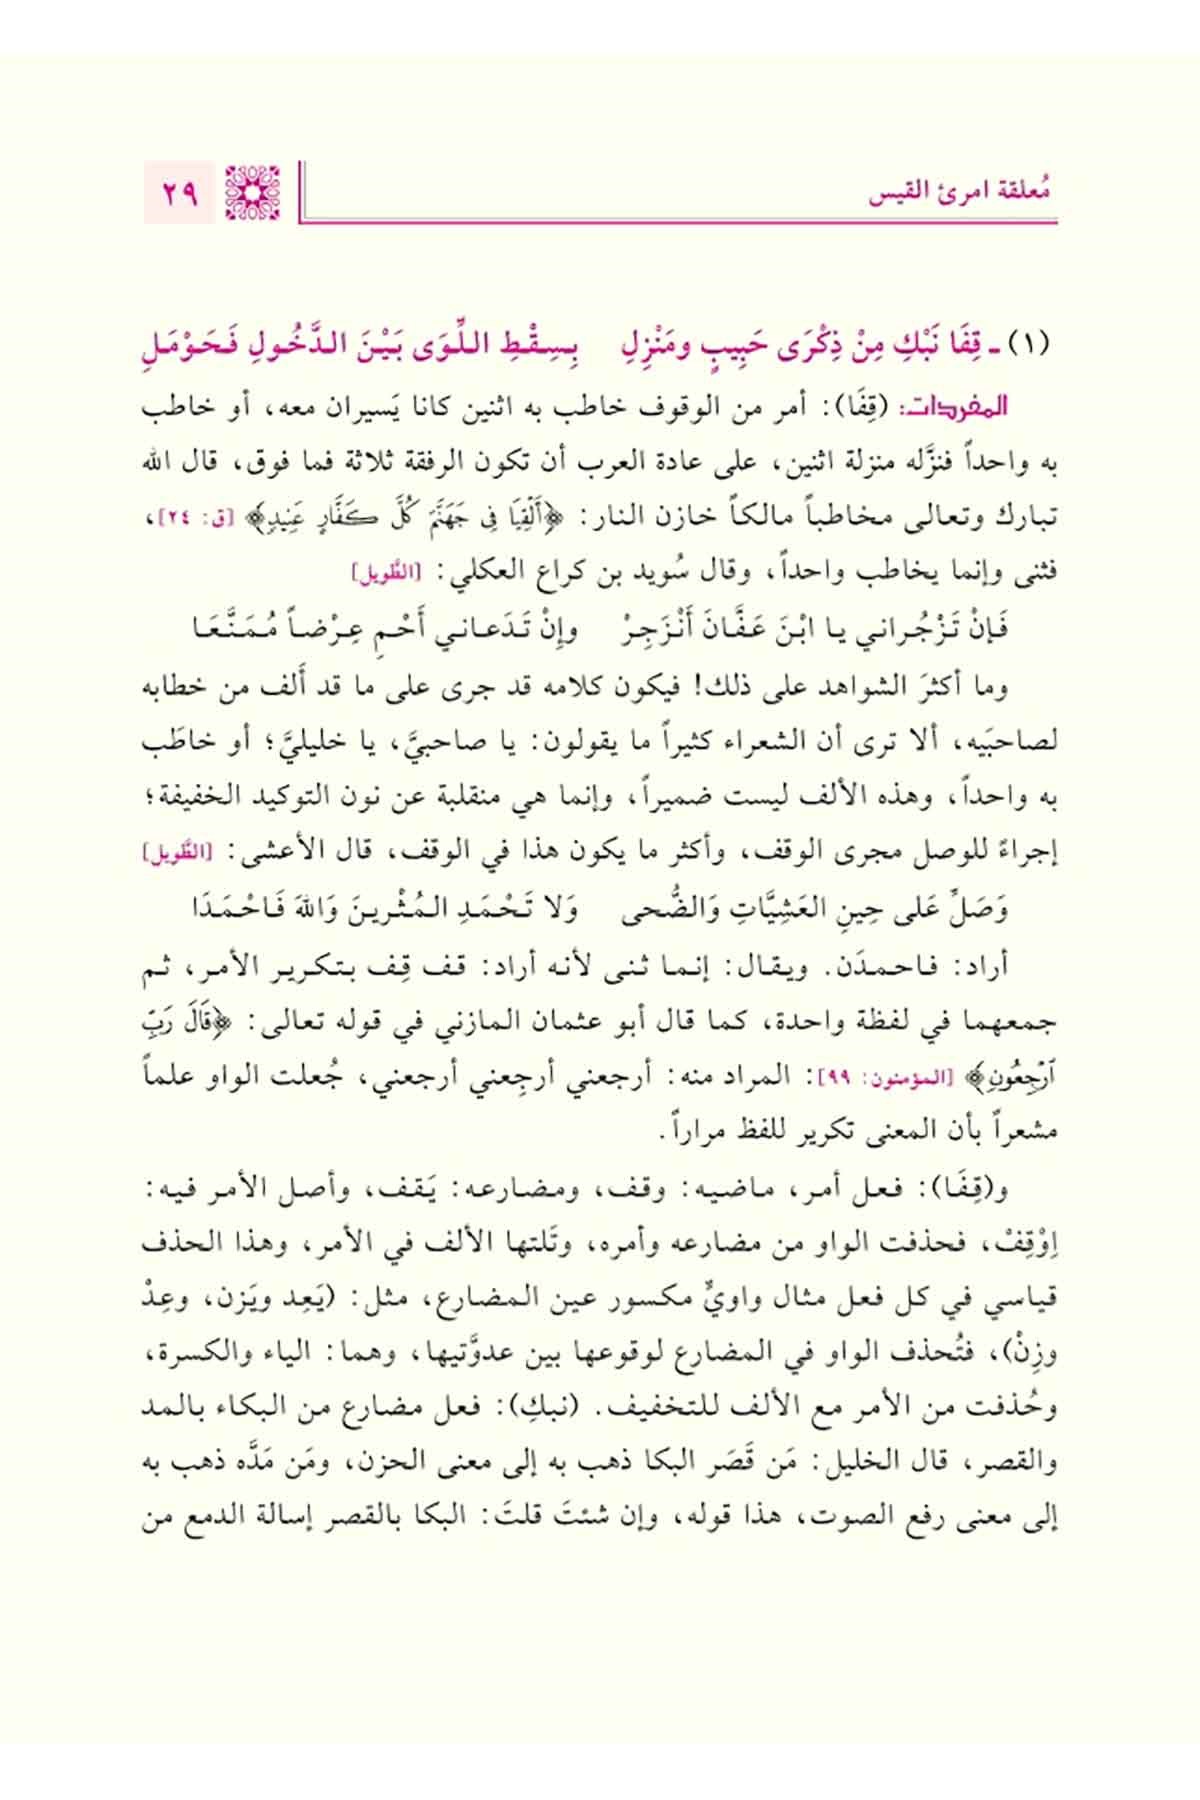 مُعلقة امرئ القيس
٢٩
(١) ـ قِفَا نَبْكِ مِنْ ذِكْرَى حَبِيبٍ ومَنْزِلِ بِسِقْطِ اللِّوَى بَيْنَ الدَّخُولِ فَحَوْمَلِ
المفردات: (قِفَا): أمر من الوقوف خاطب به اثنين كانا يَسيران معه، أو خاطب
به واحداً فنزَّله منزلة اثنين، على عادة العرب أن تكون الرفقة ثلاثة فما فوق، قال الله
تبارك وتعالى مخاطباً مالكاً خازن النار: ﴿أَلْقِيَا فِى جَهَنَّمَ كُلَّ كَفَّارٍ عَنِيدٍ﴾ [ق: ٢٤]،
فثنى وإنما يخاطب واحداً، وقال سُويد بن كراع العكلي: [الطَّويل]
فَإنْ تَزْجُراني يا ابْنَ عَفَّانَ أَنْزَجِرْ وإِنْ تَدَعـاني أَحْمِ عِرْضاً مُمَنَّعَا
وما أكثرَ الشواهد على ذلك! فيكون كلامه قد جرى على ما قد أَلف من خطابه
لصاحبَيه، ألا ترى أن الشعراء كثيراً ما يقولون: يا صاحبيَّ، يا خليليَّ؛ أو خاطَب
به واحداً، وهذه الألف ليست ضميراً، وإنما هي منقلبة عن نون التوكيد الخفيفة؛
إجراءً للوصل مجرى الوقف، وأكثر ما يكون هذا في الوقف، قال الأعشى: [الطَّويل]
وَصَلِّ عَلى حِينِ العَشِيَّاتِ وَالضُّحى وَلا تَحْمَدِ المُثْرينَ وَاللهَ فَاحْمَدَا
أراد: فاحمدَن. ويقال: إنما ثنى لأنه أراد: قف قِف بتكرير الأمر، ثم
جمعهما في لفظة واحدة، كما قال أبو عثمان المازني في قوله تعالى: ﴿قَالَ رَبِّ
ٱرْجِعُونِ﴾ [المؤمنون: ٩٩]: المراد منه: أرجعني أرجِعني أرجعني، جُعلت الواو علماً
مشعراً بأن المعنى تكرير للفظ مراراً.
و(قِفَا): فعل أمر، ماضيه: وقف، ومضارعه: يَقف، وأصل الأمر فيه:
اِوْقِفْ، فحذفت الواو من مضارعه وأمره، وتَلتها الألف في الأمر، وهذا الحذف
قياسي في كل فعل مثال واويٌّ مكسور عين المضارع، مثل: (يَعِد ويَزن، وعِدْ
وزِنْ)، فتُحذف الواو في المضارع لوقوعها بين عدوَّتيها، وهما: الياء والكسرة،
وحُذفت من الأمر مع الألف للتخفيف. (نبكِ): فعل مضارع من البكاء بالمد
والقصر، قال الخليل: مَن قَصَر البكا ذهب به إلى معنى الحزن، ومَن مَدَّه ذهب به
إلى معنى رفع الصوت، هذا قوله، وإن شئتَ قلتَ: البكا بالقصر إسالة الدمع من